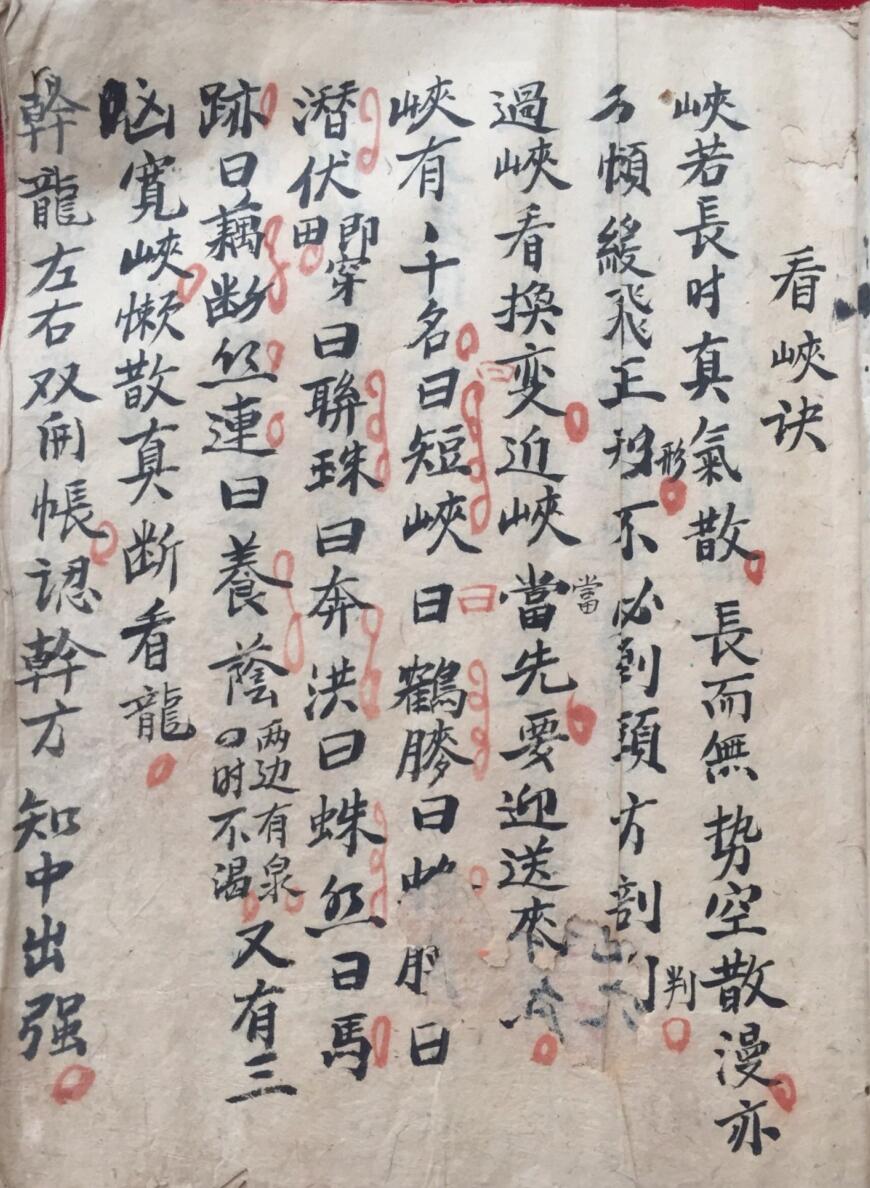 看峽诀
峽若長时真氣散長而無势空散漫亦
煩緩飛正形不必到頭方剖判
過峽看換变近峽當先要迎送來
當
峽有十名曰短峽曰鶴膝曰蜂腰曰
潛伏即穿田曰聨珠曰奔洪曰蛛丝曰馬
跡曰藕断丝連曰養蔭两边有泉四时不渴又有三
凶寛峽懒散真断看龍
幹龍左右双開帳認幹方知中出强